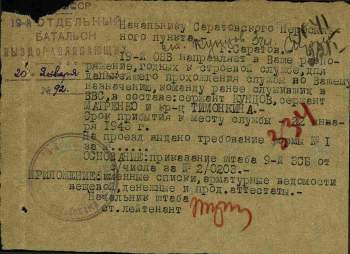 СССР
19-й ОТДЕЛЬНЫЙ
БАТАЛЬОН
ВЫЗДОРАВЛИВАЮЩИХ
20 Января
№ 92.
Начальнику Саратовского
ного пункта.
г. Саратов.
19-й ОБВ направляет в Ваше распо-
ряжение, годных к строевой службе, для
дальнейшего прохождения службы по Вашему
назначению, команду ранее служивших в
ВВС, в составе: сержант КУНЦОВ, сержант
МАТРЕНКО и кр-ц ТИМОНКИН А.
Срок прибытия к месту службы - 22 янва-
ря 1943 г.
334
На проезд выдано требование формы № 1
за
ОСНОВАНИЕ: приказание штаба 9-й ЗСБ от
числа за № 2/0203.-
ПРИЛОЖЕНИЕ: именные списки, арматурные ведомости
вещевой, денежные и прод. аттестаты.-
Начальник штаба
ст. лейтенант